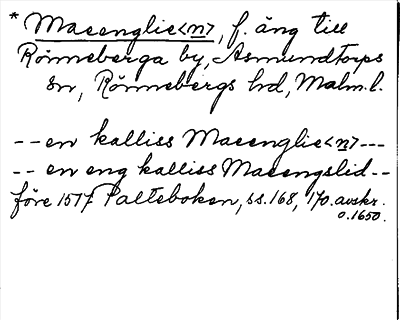 * Macenglie<n>, f. äng till
Rönneberga by, Asmundtorps
sn, Rönnebergs hd, Malm. l.
-- en kalliss Macenglie<n> ---
-- en eng kalliss Macengslid --
före 1517 Palteboken, ss. 168, 170. avskr.
o. 1650.